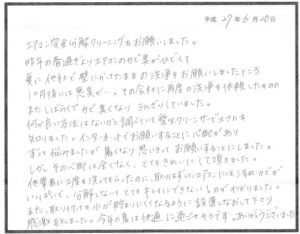 平成 27年 6月 20日
エアコン完全分解クリーニングをお願いしました。
昨年の春過ぎよりエアコンのカビ臭がひどくて
夏に他社で壁にかけたままの洗浄をお願いしましたところ
1ヶ月後には悪臭が…。その会社に再度の洗浄を依頼したものの
またしばらくでカビ臭くなり うんざりしていました。
何か良い方法はないかと調べていて 完全クリーニングを
知りました。インターネットでお願いすることに心配があり
ずっと悩みましたが 暑くなり 思いきってお願いすることにしました。
しかし、その心配は全くなく、とてもきれいにして頂きました。
他業者に2度も洗ってもらったのに、取りはずしたエアコンには汚れカビが
いっぱいで、分解しないととてもキレイにできないのがわかりました。
また、取り付けも水が貯まりにくくなるように設置しなおして下さり
感激しました。今年の夏は快適に過ごせそうです。ありがとうございました